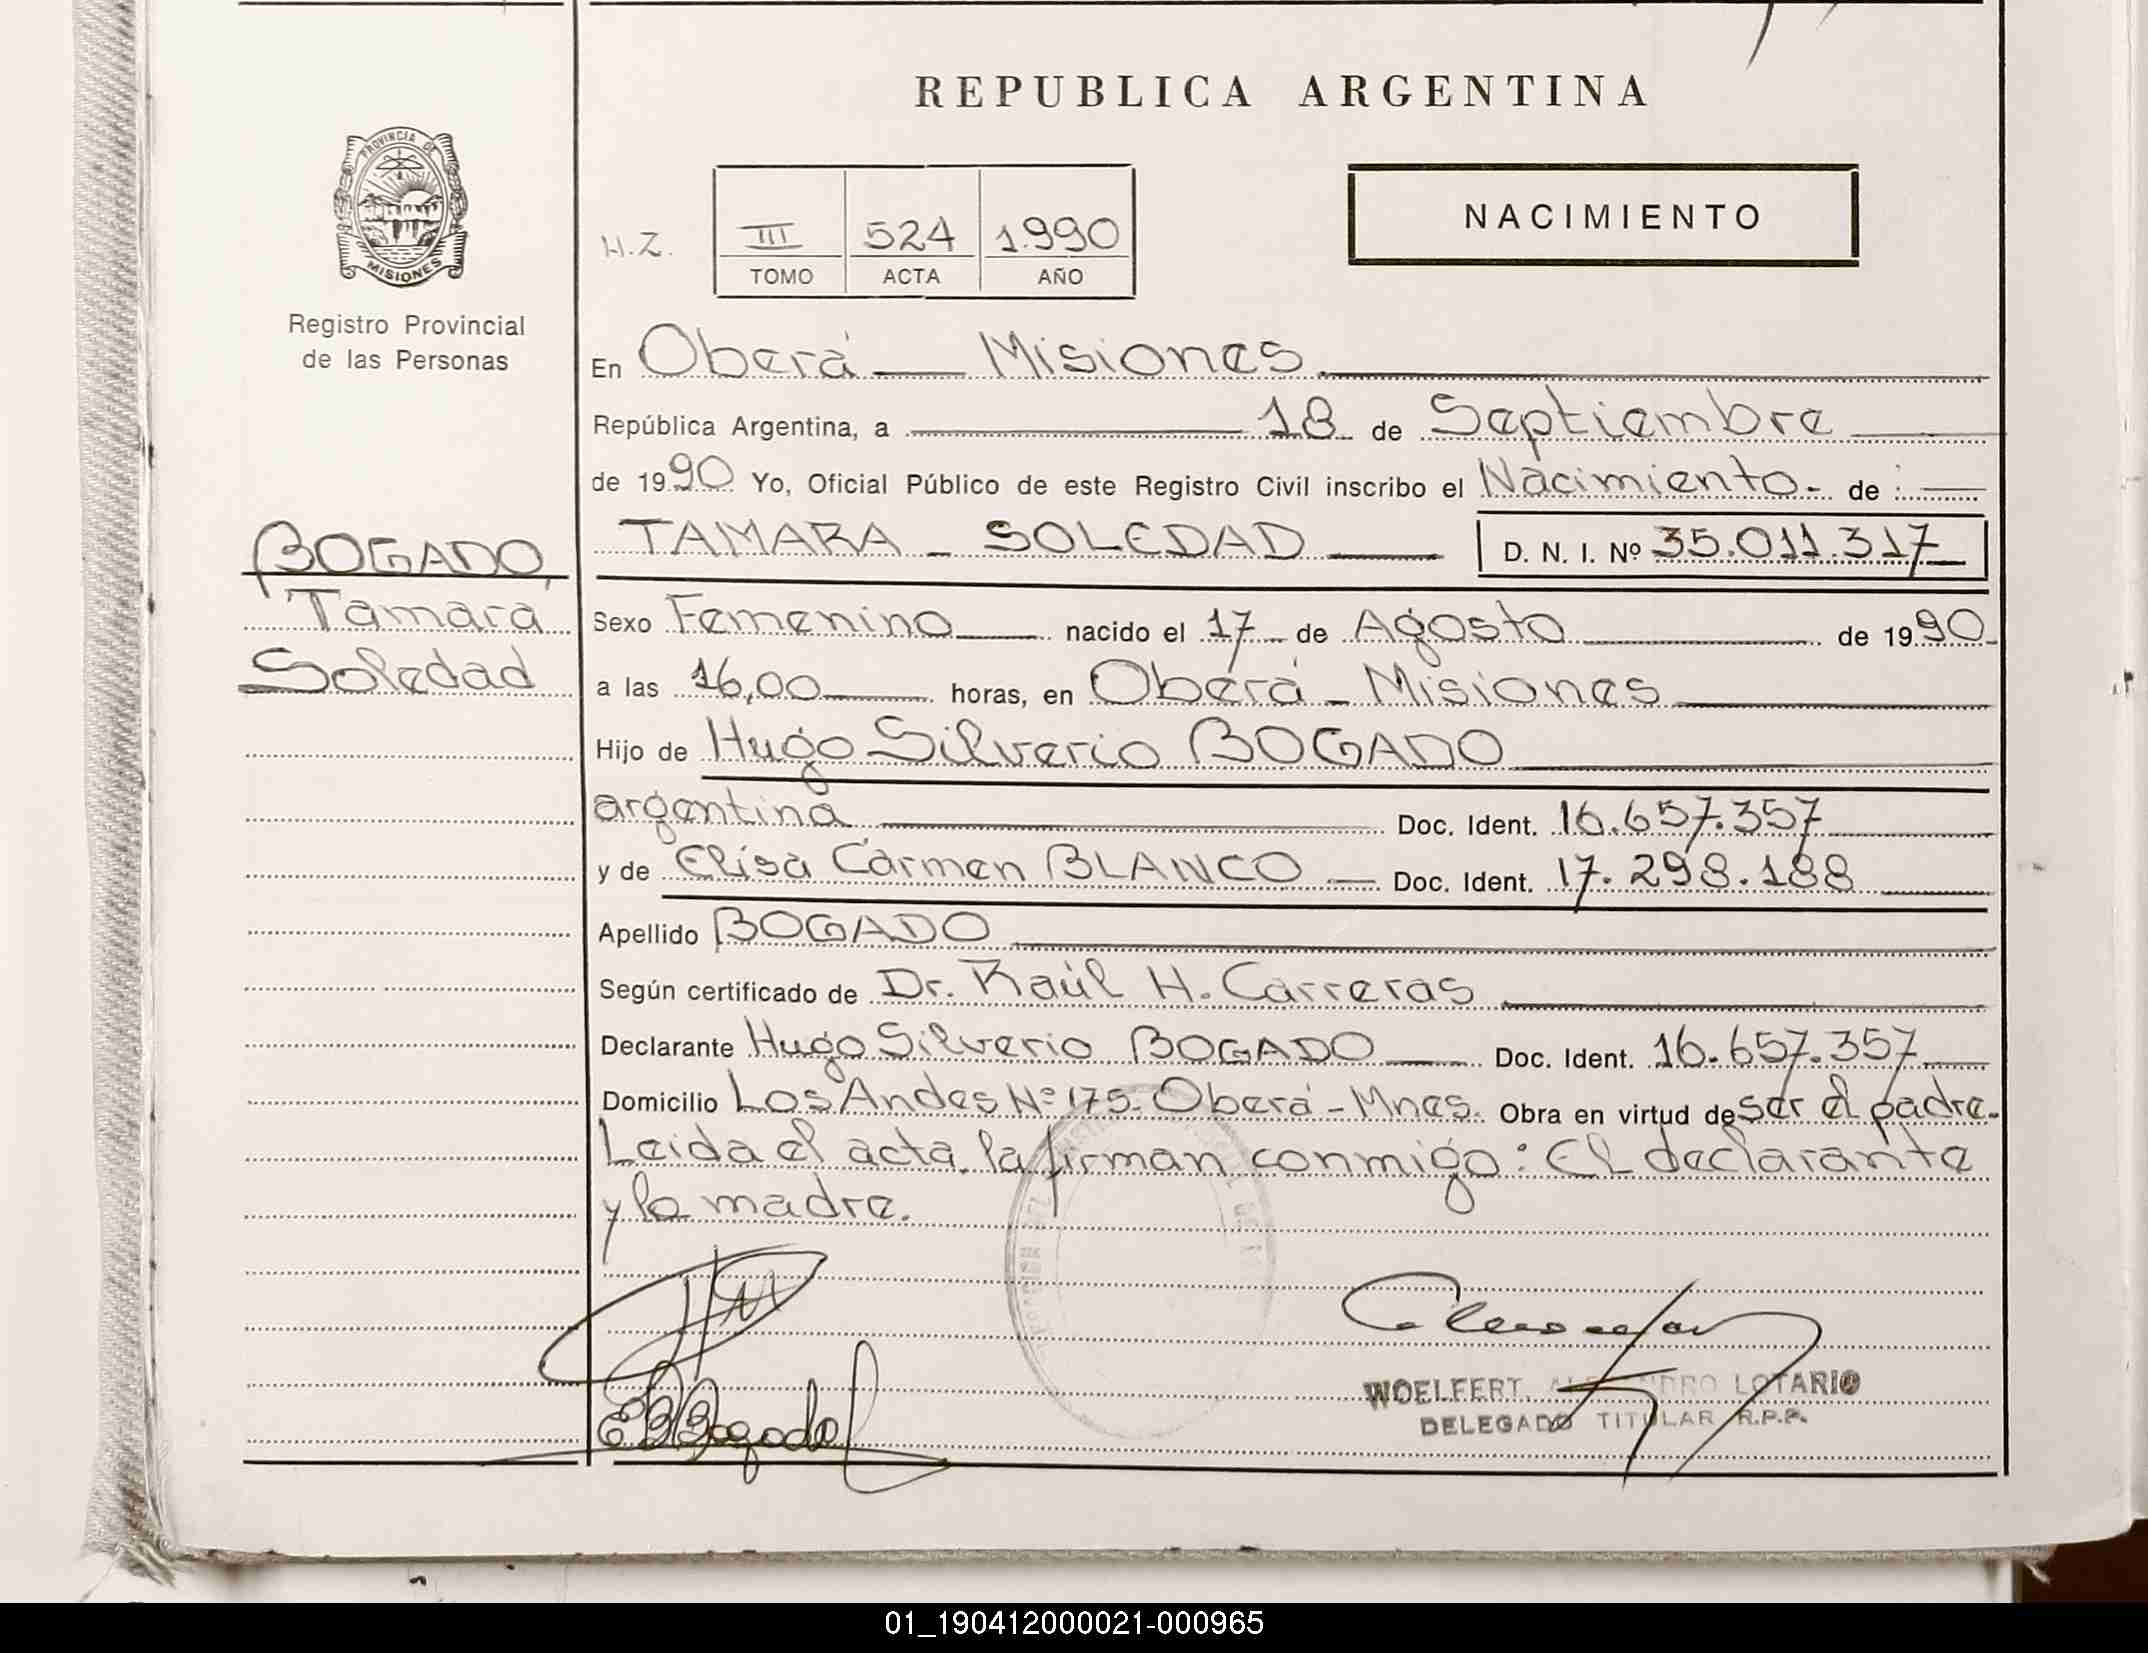 REPUBLICA ARGENTINA
PROVINCIA DE
MISIONES
Registro Provincial
de las Personas
H.Z.
III 524 1.990
TOMO ACTA AÑO
NACIMIENTO
En Oberá — Misiones
República Argentina, a 18 de Septiembre
de 1990 Yo, Oficial Público de este Registro Civil inscribo el Nacimiento.- de :
BOGADO,
Tamara
Soledad
TAMARA - SOLEDAD D. N. I. Nº 35.011.317
Sexo Femenino nacido el 17 de Agosto de 1990
a las 16,00 horas, en Oberá - Misiones
Hijo de Hugo Silverio BOGADO
argentina Doc. Ident. 16.657.357
y de Elisa Carmen BLANCO — Doc. Ident. 17.298.188
Apellido BOGADO
Según certificado de Dr. Raúl H. Carreras
Declarante Hugo Silverio BOGADO Doc. Ident. 16.657.357
Domicilio Los Andes Nº 175. Oberá - Mnes. Obra en virtud de ser el padre.-
Leida el acta, la firman conmigo: El declarante
y la madre.
E B Bogado
WOELFERT, ALEJANDRO LOTARIO
DELEGADO TITULAR R.P.P.
01_190412000021-000965